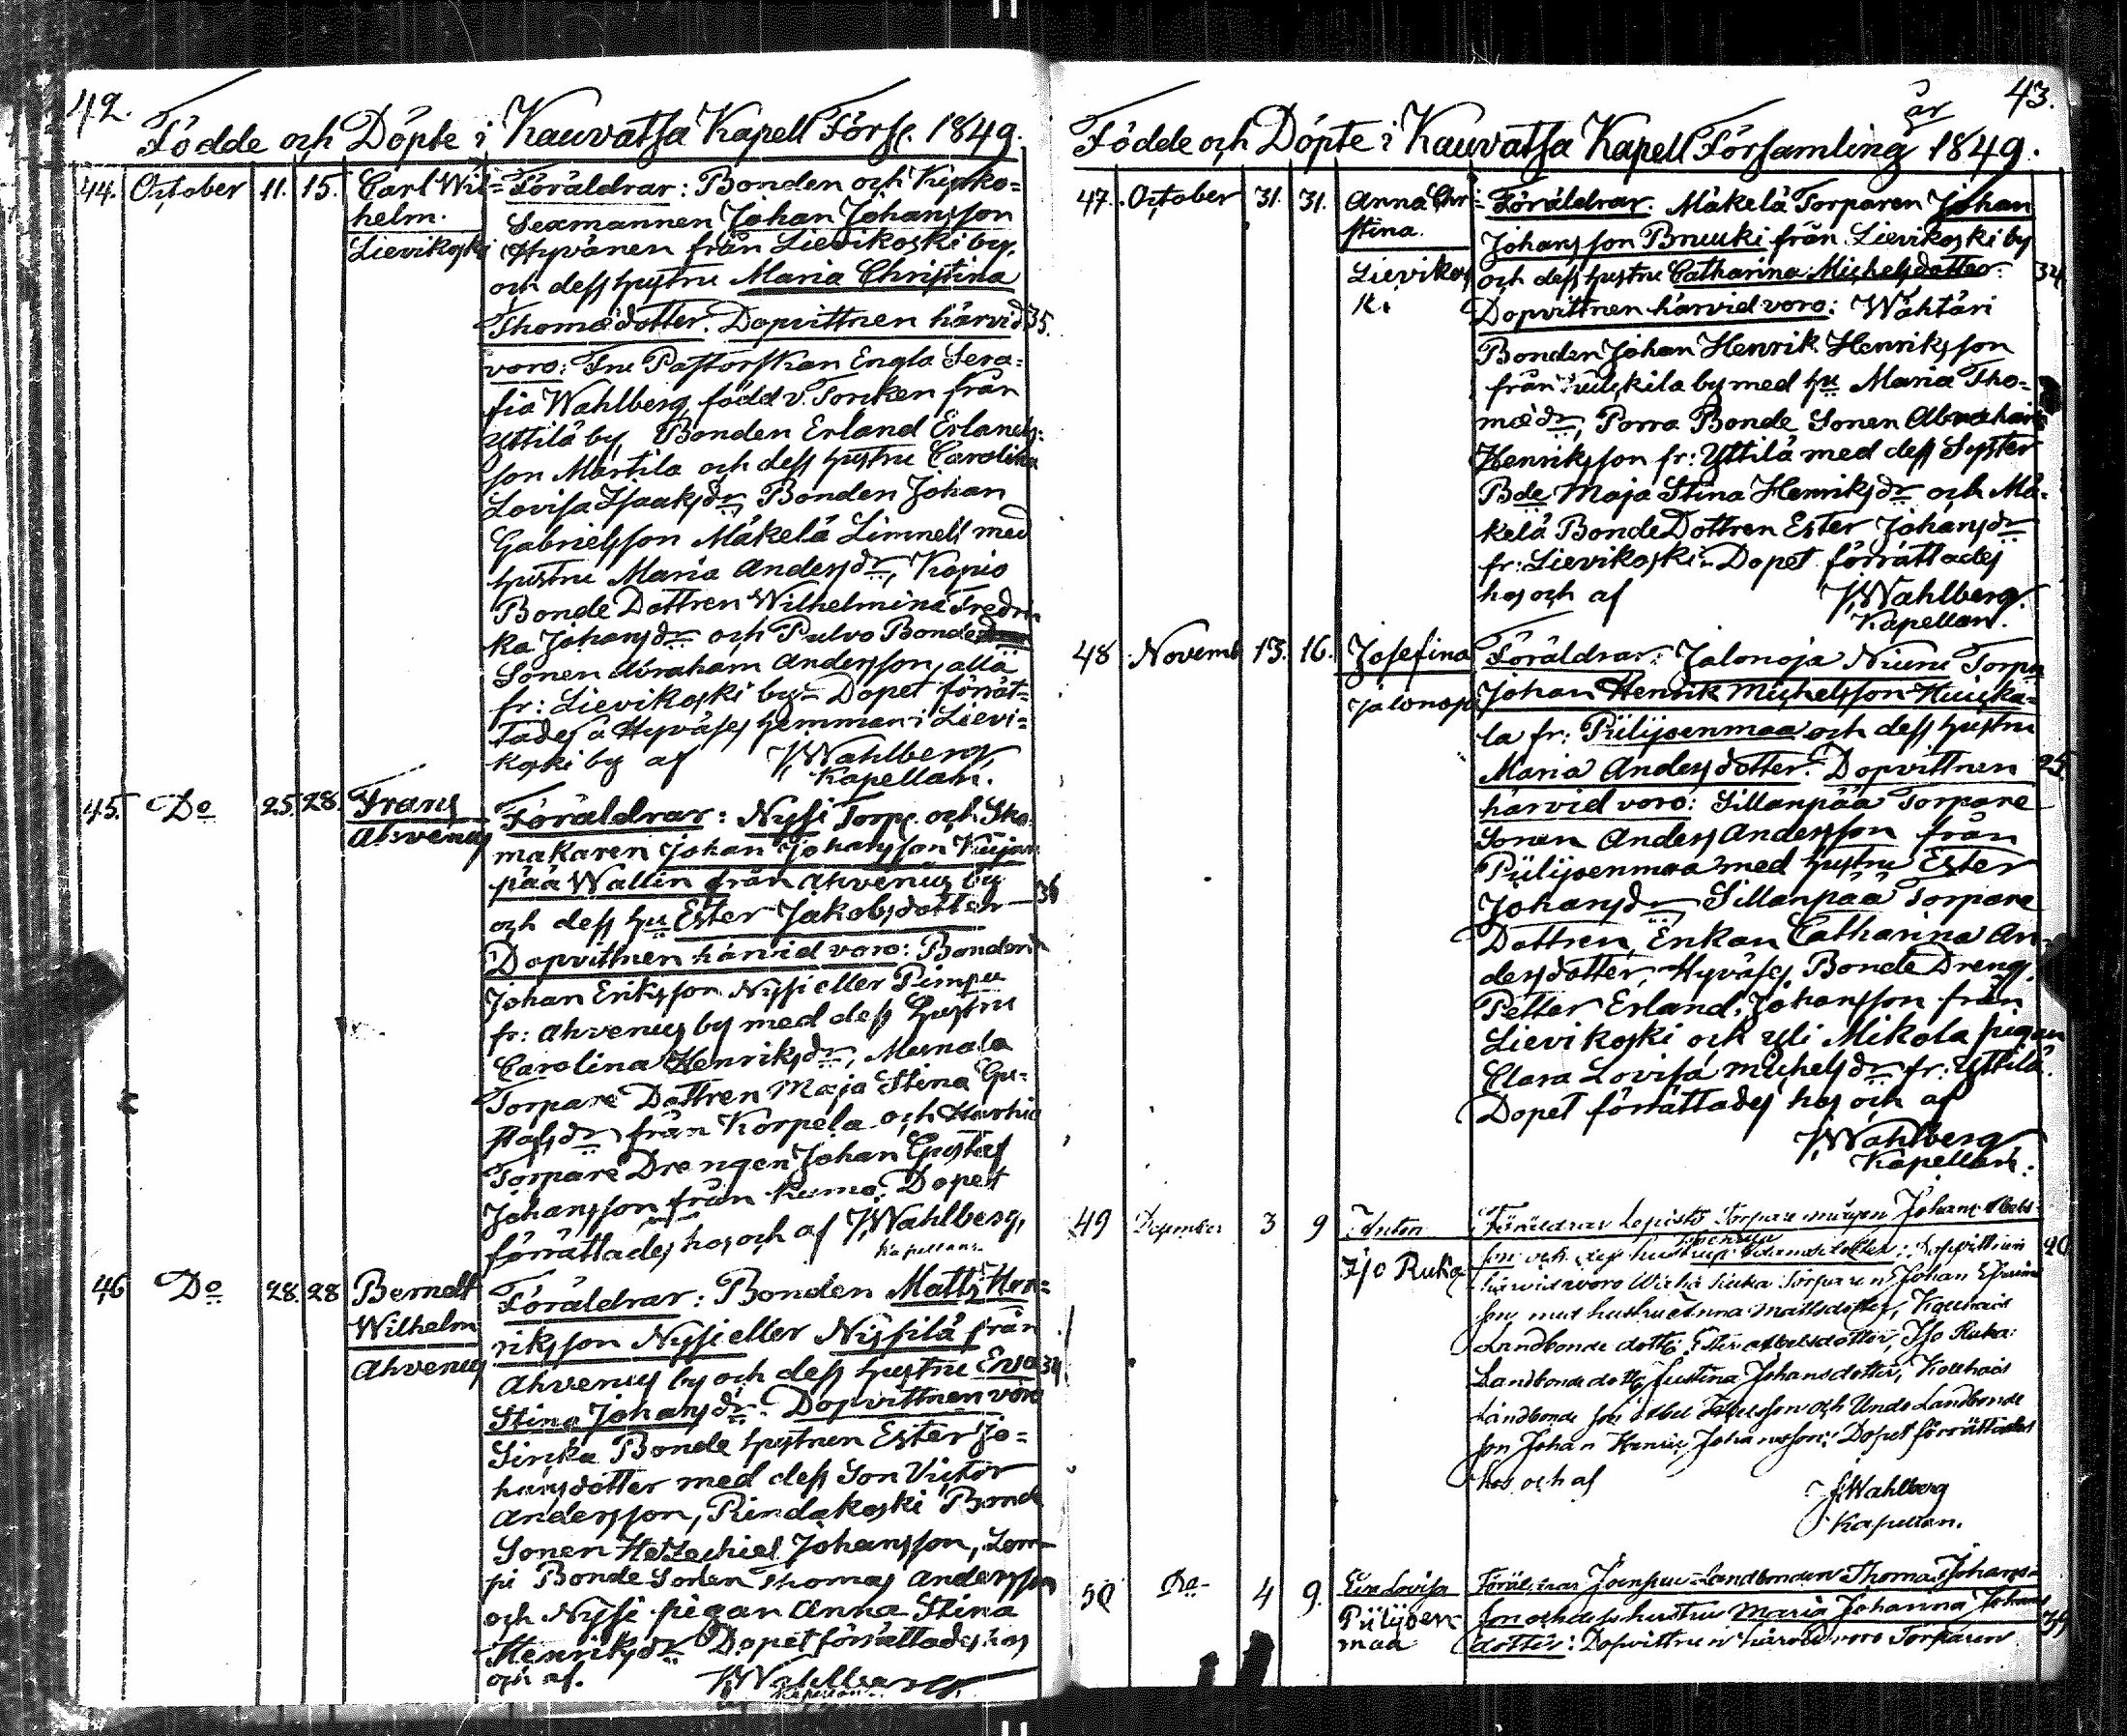 42.
Födde och Döpte i Kauvatsa Kapell Förs. 1849.
44. October 11. 15. Carl Wil=
helm.
Lievikoski
Föräldrar: Bonden och Kyrko=
Sexmannen Johan Johansson
Hyvänen från Lievikoski by,
och dess hustru Maria Christina
Thomædotter. Dopvittnen härvid 35.
voro: Fru Pastorskan Engla Sera=
fia Wahlberg, född v. Torcken från
Yttilä by, Bonden Erland Erlands=
son Marttila och dess hustru Carolina
Lovisa Isaaksdr, Bonden Johan
Gabrielsson Mäkelä Limnell med
hustru Maria Andersdr,
Bonde Dottren Wilhelmina Fredri
ka Johansdr och Pulvo Bonde
Sonen Abraham Andersson, alla
fr: Lievikoski by. Dopet förrät=
tades å Hyväses hemman i Lievi=
koski by af J Wahlberg,
Kapellan.
45. Do 25. 28. Frans
Ahvenus
Föräldrar: Nyssi Torp. och Sko
makaren Johan Johansson Kujan
pää Wallin från Ahvenus by
och dess hu Ester Jakobsdotter 36
Dopvittnen härvid voro: Bonden
Johan Eriksson Nyssi eller Pimpu
fr: Ahvenus by med dess hustru
Carolina Henriksdr,
Torpare Dottren Maja Stina Gu=
stafsdr från Korpela och
Torpare Drengen Johan Gustaf
Johansson från Kumo. Dopet
förrättades hos och af J Wahlberg,
Kapellan.
46 Do 28. 28 Berndt
Wilhelm
Ahvenus
Föräldrar: Bonden Matts Hen=
riksson Nyssi eller Nissilä från
Ahvenus by och dess hustru Eva 34
Stina Johansdr. Dopvittnen voro
Bonde hustrun Ester Jo=
hansdotter med dess Son Victor
Andersson, Rindakoski Bonde
Sonen Hetzechiel Johansson, Lem
pi Bonde Sonen Thomas Andersson
och Nyssi pigan Anna Stina
Henriksdr. Dopet förrättades hos
och af. J Wahlberg
Kapellan.
43.
Födde och Döpte i Kauvatsa Kapell Församling år 1849.
47. October 31. 31. Anna Chri=
stina.
Lievikos
ki
Föräldrar: Mäkelä Torparen Johan
Johansson Bruuki från Lievikoski by
och dess hustru Catharina Michelsdotter. 34
Dopvittnen härvid voro: Wähtäri
Bonden Johan Henrik Henriksson
från by med hu Maria Tho=
mædr, Porra Bonde Sonen Abraham
Henriksson fr: Yttilä med dess Syster
Bde Maja Stina Henriksdr och Mä=
kelä Bonde Dottren Ester Johansdr
fr: Lievikoski. Dopet förrättades
hos och af J Wahlberg.
Kapellan.
48. Novemb 13. 16. Josefina
Jalonoja
Föräldrar: Jalonoja Niemi Torpa
Johan Henrik Michelsson
la fr: Piilijoenmaa och dess hustru
Maria Andersdotter. Dopvittnen 25.
härvid voro: Sillanpää Torpare
Sonen Anders Andersson från
Piilijoenmaa med hustru Ester
Johansdr, Sillanpää Torpare
Dottren, Enkan Catharina An=
dersdotter, Hyväses Bonde Dreng.
Petter Erland Johansson från
Lievikoski och Yli Mikola pigan
Clara Lovisa Michelsdr fr: Yttilä.
Dopet förrättades hos och af
J Wahlberg
Kapellan.
49 December 3 9 Anton
Iso Ruka
Föräldrar Lepistö Torpare Johan Abels=
son och dess hustru Erlandsdotter: Dopvittnen 20
härvid voro Torparen Johan
son med hustru Anna Mattsdotter,
Landbonde dott. Ester Abelsdotter, Iso Ruka
Landbonde dott. Justina Johansdotter,
Landbonde son Abel och Landbonde
son Johan Johansson; Dopet förrättades
hos och af
J Wahlberg
Kapellan.
50 Do 4 9. Eva Lovisa
Piilijoen
maa
Föräldrar Landbonden Thomas Johans=
son och dess hustru Maria Johanna Johans
dotter: Dopvittnen härvid voro Torparen